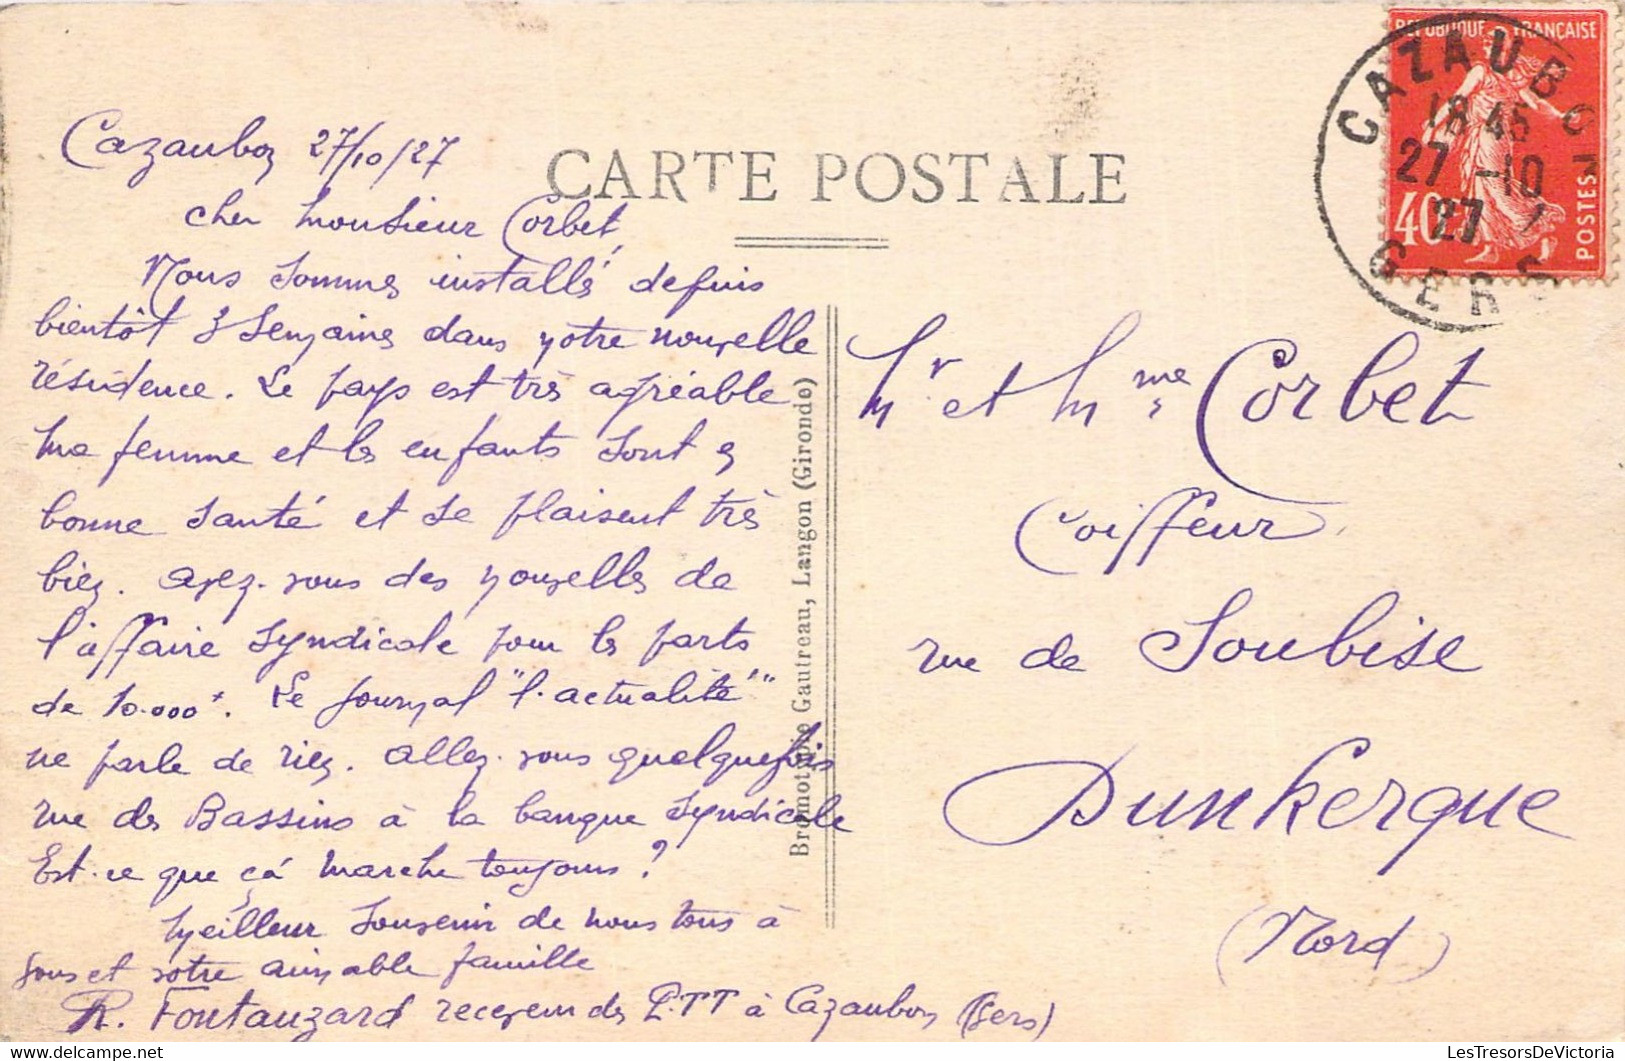 Cazaubon 27/10/27
CARTE POSTALE
Cher Monsieur Corbet,
Nous sommes installés depuis
bientôt 3 semaines dans notre nouvelle
résidence. Le pays est très agréable
ma femme et les enfants sont en
bonne santé et se plaisent très
bien. Avez-vous des nouvelles de
l'affaire syndicale pour les parts
de 10.000 f. Le journal "l'actualité"
ne parle de rien. Allez-vous quelquefois
rue des Bassins à la banque syndicale
Est-ce que ça marche toujours?
Meilleur souvenir de nous tous à
vous et votre aimable famille
R. Fontauzard receveur des P.TT à Cazaubon (Gers)
Bromotypie Gautreau, Langon (Gironde)
REPUBLIQUE FRANÇAISE
40c
POSTES
CAZAUBON
18 45
27 -10
27
GERS
Mr et Mme Corbet
Coiffeur
rue de Soubise
Dunkerque
(Nord)
LesTresorsDeVictoria